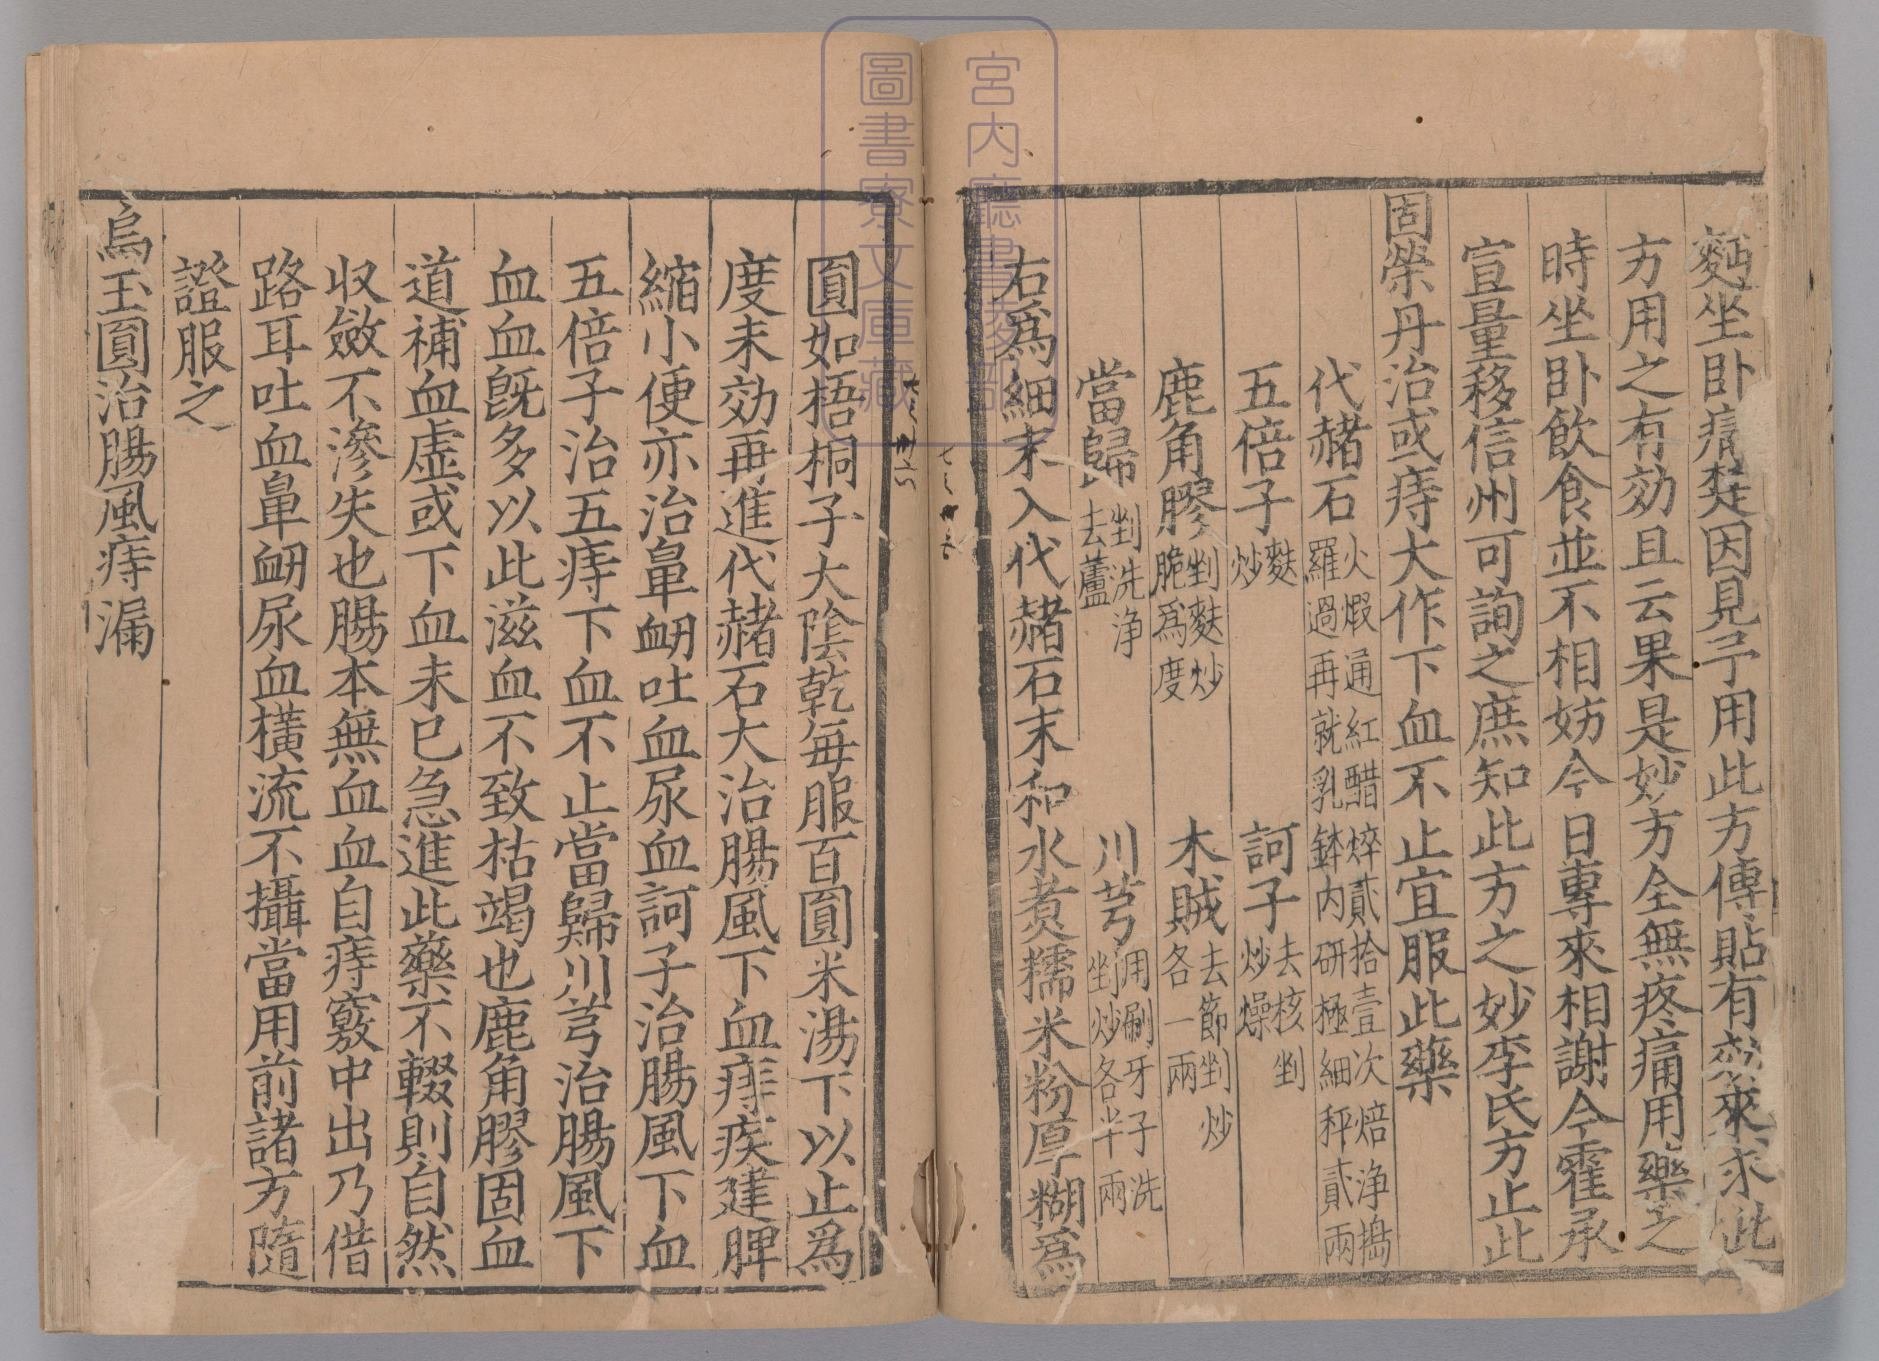 麪坐卧痛楚因見予用此方傳貼有效來求此
方用之有効且云果是妙方全無疼痛用藥之
時坐卧飲食並不相妨今日專來相謝今霍承
宣量移信州可詢之庶知此方之妙李氏方止此
固榮丹治或痔大作下血不止宜服此藥
代赭石 火煆通紅醋焠貳拾壹次焙浄搗
羅過再就乳鉢内研極細秤貳兩
五倍子 麩
炒
訶子 去核剉
炒燥
鹿角膠 剉麩炒
脆爲度
木賊 去節剉炒
各一兩
當歸 剉洗浄
去蘆
川芎 用刷牙子洗
剉炒各半兩
右爲細末入代赭石末和水煮糯米粉厚糊爲
圓如梧桐子大陰乾每服百圓米湯下以止爲
度未効再進代赭石大治腸風下血痔疾建脾
縮小便亦治鼻衂吐血尿血訶子治腸風下血
五倍子治五痔下血不止當歸川芎治腸風下
血血旣多以此滋血不致枯竭也鹿角膠固血
道補血虛或下血未已急進此藥不輟則自然
収斂不滲失也腸本無血血自痔竅中出乃借
路耳吐血鼻衂尿血橫流不攝當用前諸方隨
證服之
烏玉圓治腸風痔漏
宮内廳書陵部
圖書寮文庫藏